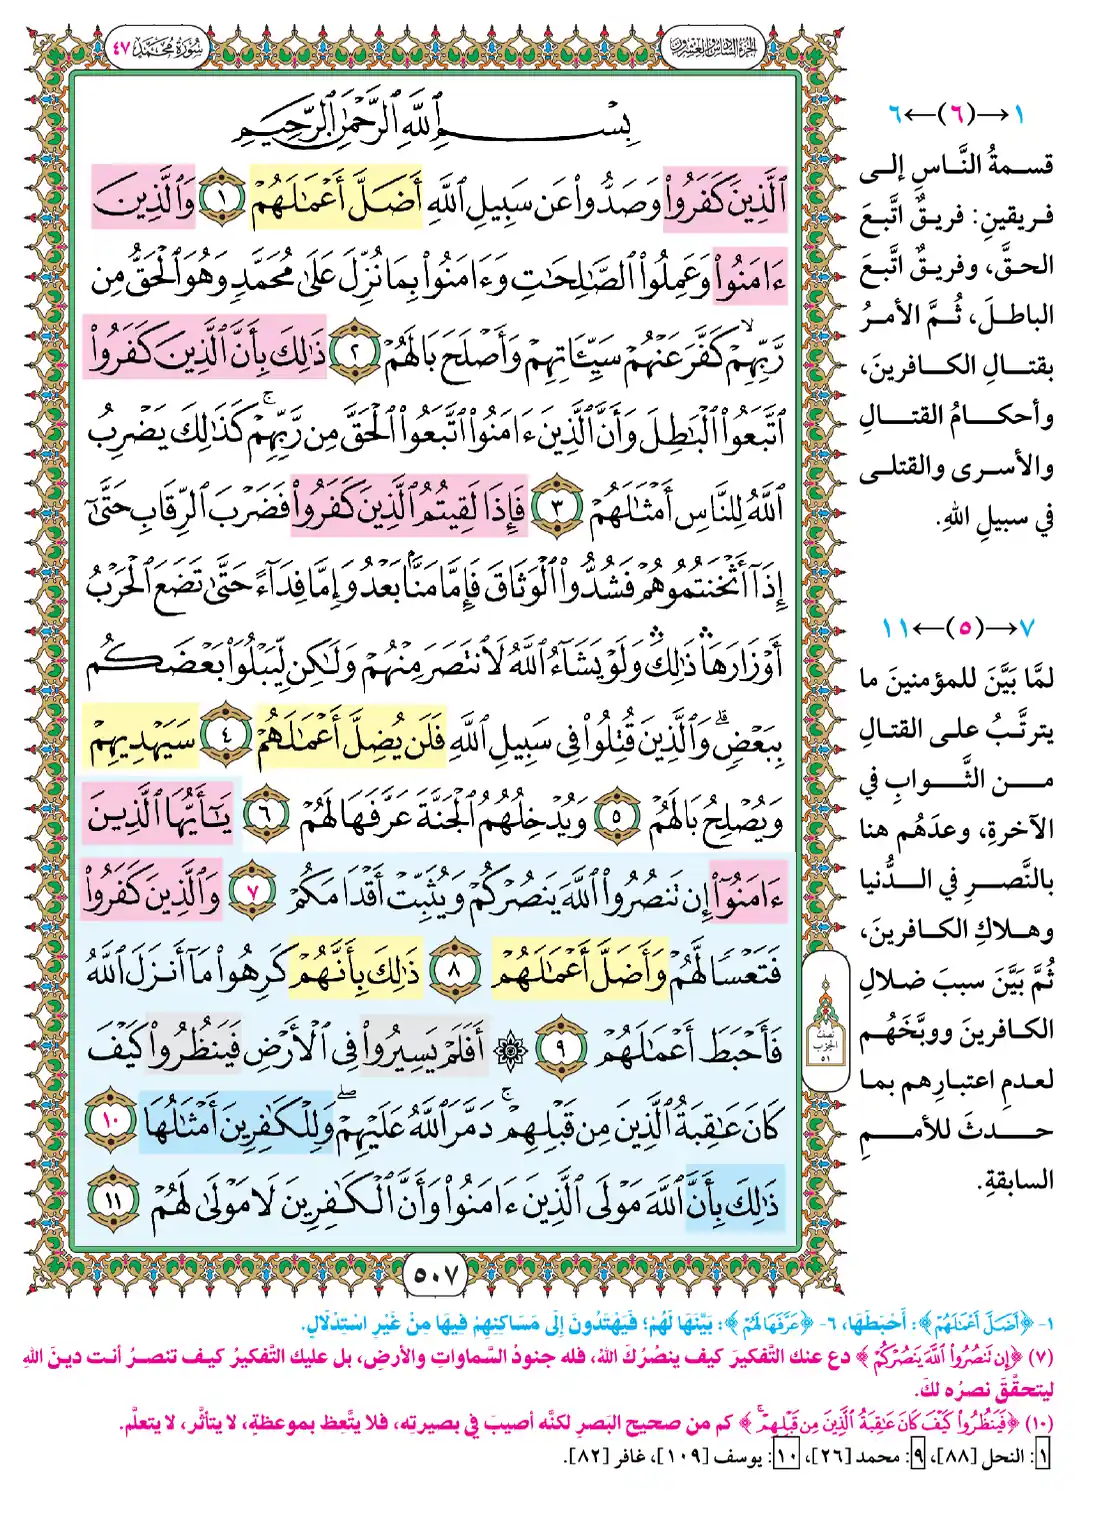 الجزء السادس والعشرون
سورة محمد ٤٧
بِسْمِ ٱللَّهِ ٱلرَّحْمَٰنِ ٱلرَّحِيمِ
ٱلَّذِينَ كَفَرُوا۟ وَصَدُّوا۟ عَن سَبِيلِ ٱللَّهِ أَضَلَّ أَعْمَٰلَهُمْ ١ وَٱلَّذِينَ
ءَامَنُوا۟ وَعَمِلُوا۟ ٱلصَّٰلِحَٰتِ وَءَامَنُوا۟ بِمَا نُزِّلَ عَلَىٰ مُحَمَّدٍ وَهُوَ ٱلْحَقُّ مِن
رَّبِّهِمْ ۙ كَفَّرَ عَنْهُمْ سَيِّـَٔاتِهِمْ وَأَصْلَحَ بَالَهُمْ ٢ ذَٰلِكَ بِأَنَّ ٱلَّذِينَ كَفَرُوا۟
ٱتَّبَعُوا۟ ٱلْبَٰطِلَ وَأَنَّ ٱلَّذِينَ ءَامَنُوا۟ ٱتَّبَعُوا۟ ٱلْحَقَّ مِن رَّبِّهِمْ ۚ كَذَٰلِكَ يَضْرِبُ
ٱللَّهُ لِلنَّاسِ أَمْثَٰلَهُمْ ٣ فَإِذَا لَقِيتُمُ ٱلَّذِينَ كَفَرُوا۟ فَضَرْبَ ٱلرِّقَابِ حَتَّىٰٓ
إِذَآ أَثْخَنتُمُوهُمْ فَشُدُّوا۟ ٱلْوَثَاقَ فَإِمَّا مَنًّۢا بَعْدُ وَإِمَّا فِدَآءً حَتَّىٰ تَضَعَ ٱلْحَرْبُ
أَوْزَارَهَا ۛ ذَٰلِكَ ۛ وَلَوْ يَشَآءُ ٱللَّهُ لَٱنتَصَرَ مِنْهُمْ وَلَٰكِن لِّيَبْلُوَا۟ بَعْضَكُم
بِبَعْضٍ ۗ وَٱلَّذِينَ قُتِلُوا۟ فِى سَبِيلِ ٱللَّهِ فَلَن يُضِلَّ أَعْمَٰلَهُمْ ٤ سَيَهْدِيهِمْ
وَيُصْلِحُ بَالَهُمْ ٥ وَيُدْخِلُهُمُ ٱلْجَنَّةَ عَرَّفَهَا لَهُمْ ٦ يَٰٓأَيُّهَا ٱلَّذِينَ
ءَامَنُوٓا۟ إِن تَنصُرُوا۟ ٱللَّهَ يَنصُرْكُمْ وَيُثَبِّتْ أَقْدَامَكُمْ ٧ وَٱلَّذِينَ كَفَرُوا۟
فَتَعْسًا لَّهُمْ وَأَضَلَّ أَعْمَٰلَهُمْ ٨ ذَٰلِكَ بِأَنَّهُمْ كَرِهُوا۟ مَآ أَنزَلَ ٱللَّهُ
فَأَحْبَطَ أَعْمَٰلَهُمْ ٩ ۞ أَفَلَمْ يَسِيرُوا۟ فِى ٱلْأَرْضِ فَيَنظُرُوا۟ كَيْفَ
كَانَ عَٰقِبَةُ ٱلَّذِينَ مِن قَبْلِهِمْ ۚ دَمَّرَ ٱللَّهُ عَلَيْهِمْ ۖ وَلِلْكَٰفِرِينَ أَمْثَٰلُهَا ١٠
ذَٰلِكَ بِأَنَّ ٱللَّهَ مَوْلَى ٱلَّذِينَ ءَامَنُوا۟ وَأَنَّ ٱلْكَٰفِرِينَ لَا مَوْلَىٰ لَهُمْ ١١
٥٠٧
نصف
الحزب
٥١
١→(٦)←٦
قسمةُ النَّاسِ إلى
فريقينِ: فريقٌ اتَّبعَ
الحقَّ، وفريقٌ اتَّبعَ
الباطلَ، ثُمَّ الأمرُ
بقتالِ الكافرينَ،
وأحكامُ القتالِ
والأسرى والقتلى
في سبيلِ اللهِ.
٧→(٥)←١١
لمَّا بَيَّنَ للمؤمنينَ ما
يترتَّبُ على القتالِ
من الثَّوابِ في
الآخرةِ، وعدَهُم هنا
بالنَّصرِ في الدُّنيا
وهلاكِ الكافرينَ،
ثُمَّ بَيَّنَ سببَ ضلالِ
الكافرينَ ووبَّخَهُم
لعدمِ اعتبارِهم بما
حدثَ للأممِ
السابقةِ.
١- ﴿أَضَلَّ أَعْمَٰلَهُمْ﴾: أَحْبَطَهَا، ٦- ﴿عَرَّفَهَا لَهُمْ﴾: بَيَّنَهَا لَهُمْ؛ فَيَهْتَدُونَ إِلَى مَسَاكِنِهِمْ فِيهَا مِنْ غَيْرِ اسْتِدْلَالٍ.
(٧) ﴿إِن تَنصُرُوا۟ ٱللَّهَ يَنصُرْكُمْ﴾ دع عنك التَّفكيرَ كيف ينصُرُكَ اللهُ، فله جنودُ السَّماواتِ والأرضِ، بل عليك التَّفكيرُ كيف تنصرُ أنت دينَ اللهِ
ليتحقَّقَ نصرُه لكَ.
(١٠) ﴿فَيَنظُرُوا۟ كَيْفَ كَانَ عَٰقِبَةُ ٱلَّذِينَ مِن قَبْلِهِمْ ۚ﴾ كم من صحيحِ البَصرِ لكنَّه أصيبَ في بصيرتِه، فلا يتَّعظ بموعظةٍ، لا يتأثَّر، لا يتعلَّم.
١: النحل [٨٨]، ٩: محمد [٢٦]، ١٠: يوسف [١٠٩]، غافر [٨٢].